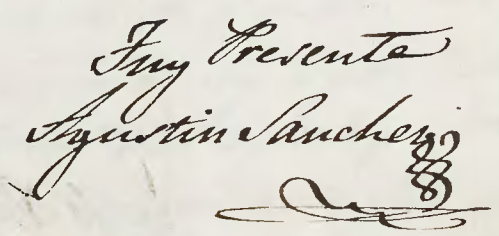 Fuy Presente
Agustin Sanchez